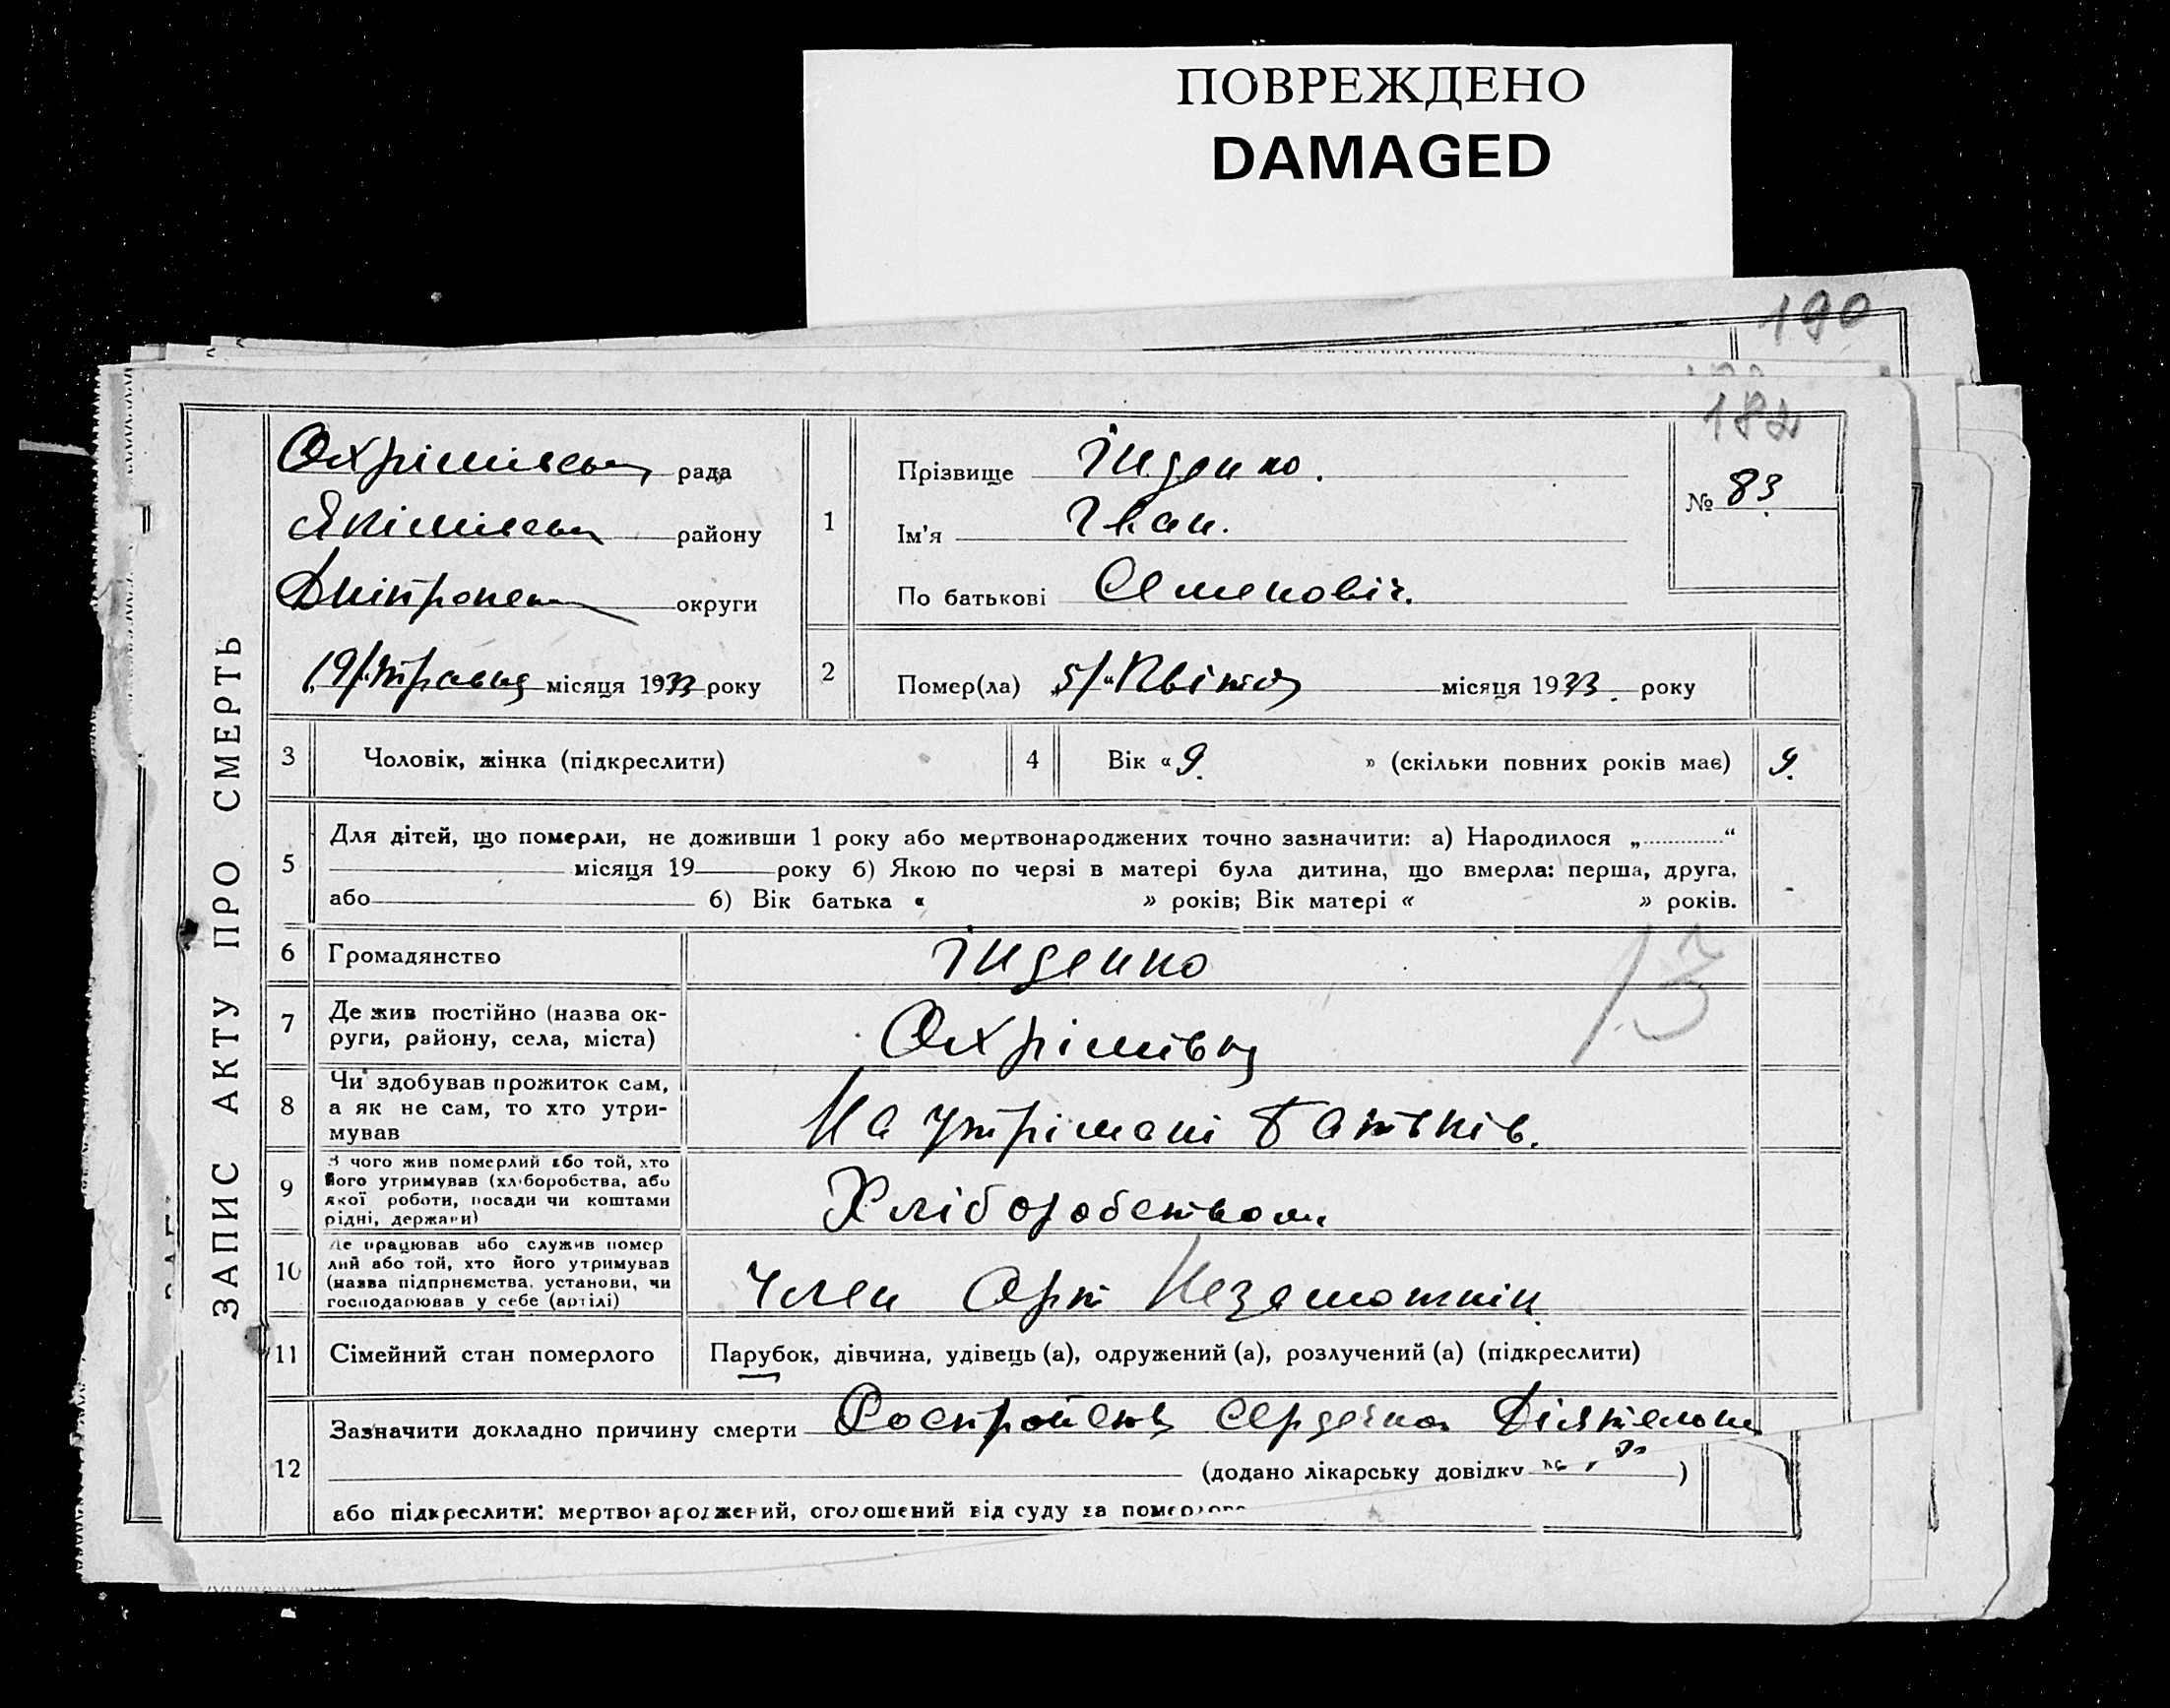 ПОВРЕЖДЕНО
DAMAGED
190
182
ЗАПИС АКТУ ПРО СМЕРТЬ
Охрімівськ рада
Якімівськ району
округи
„19/“ травня місяця 1933 року
1
Прізвище
Ім'я Іван.
По батькові Семеновіч.
№ 83
2
Помер(ла) „5/“ Квітня місяця 1933. року
3 Чоловік, жінка (підкреслити)
4 Вік « 9. » (скільки повних років має) 9.
5
Для дітей, що померли, не доживши 1 року або мертвонароджених точно зазначити: а) Народилося „ “
місяця 19 року б) Якою по черзі в матері була дитина, що вмерла: перша, друга,
або б) Вік батька « » років; Вік матері « » років.
6 Громадянство
13
7 Де жив постійно (назва ок-
руги, району, села, міста)
Охрімівка
8 Чи здобував прожиток сам,
а як не сам, то хто утри-
мував
На утрімані батьків.
9 З чого жив померлий або той, хто
його утримував (хліборобства, або
якої роботи, посади чи коштами
рідні, держави)
Хліборобством
10 Де працював або служив помер
лий або той, хто його утримував
(назва підприємства, установи, чи
господарював у себе (артілі)
Член Арт Незаможнік
11 Сімейний стан померлого
Парубок, дівчина, удівець (а), одружений (а), розлучений (а) (підкреслити)
12
Зазначити докладно причину смерти Ростройств Сердечна Діятельн
(додано лікарську довідку )
або підкреслити: мертвонароджений, оголошений від суду за померлого